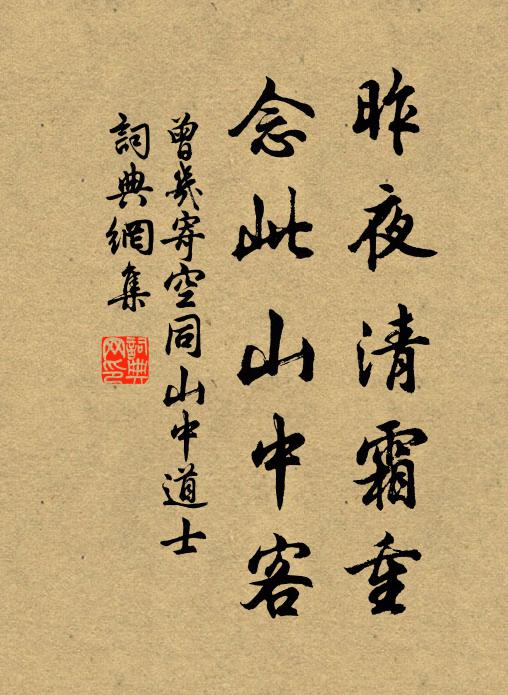 昨夜清霜重
念此山中客
曾幾寄空同山中道士
詞典網集
詞典网印